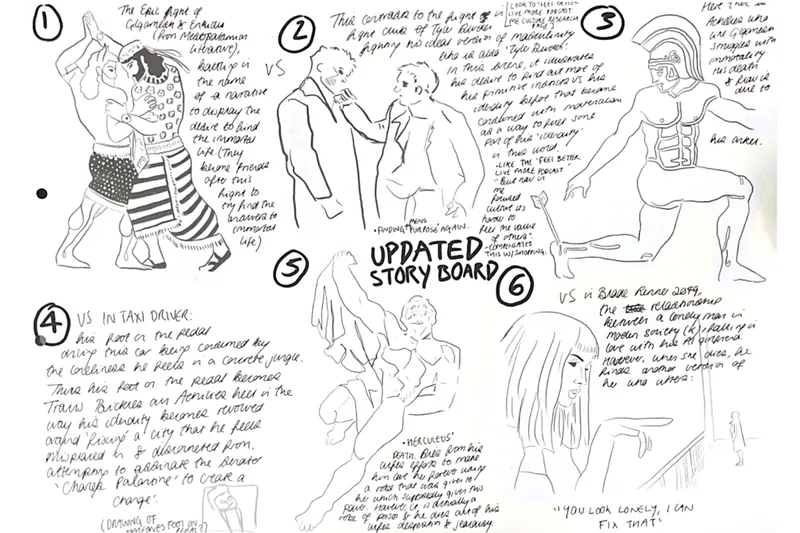 1
The Epic fight of
Gilgamesh & Enkidu
(from Mesopotamian
literature),
battling in
the name
of a narrative
to display the
desire to find
the immortal
life. (They
become friends
after this
fight to
try find the
answers to
immortal
life)
VS
2
This contrasts to the fight in
fight club of Tyler Durden
fighting his ideal version of masculinity
who is also 'Tyler Durden'.
In this scene, it
his desire to find out more of
his primitive instincts vs his
identity
with materialism
as a way to fuel some
part of his 'identity'
in this world.
LOOK TO 'FEEL BETTER
LIVE MORE PODCAST
CULTURE RESEARCH
PAGE
- LIKE THE 'FEEL BETTER
LIVE MORE PODCAST
"But now in
me
focused
culture its
harder to
feel the value
of others"
- COMPENSATES
THIS W/ SHOPPING.
• FINDING MENS 'PURPOSE' AGAIN.
3
Here there is
Achilles who
like Gilgamesh
struggles with
immortality
his death
& flaw is
due to
his ankle.
UPDATED
STORY BOARD
4
VS IN TAXI DRIVER:
his foot on the pedal
driving this car being consumed by
the loneliness he feels in a concrete jungle.
Thus his foot on the pedal becomes
Travis Bickles an Achilles heel in the
way his identity becomes revolved
around 'fixing' a city that he feels
misplaced in & disconnected from.
attempting to
'Charles Palantine' to create a
change'.
(DRAWING OF
FOOT ON
5
• 'HERCULEUS'
DEATH. Dies from his
wifes efforts to make
him
a robe that was given to
her which supposedly gives this
power. However it is actually a
robe of poison & he dies out of his
wifes desperation & jealousy.
6
VS in Blade Runner 2049,
the relationship
between a lonely man in
modern society (K), falling in
love with his AI girlfriend.
However, when she dies, he
finds another version of
her who utters:
"YOU LOOK LONELY, I CAN
FIX THAT"